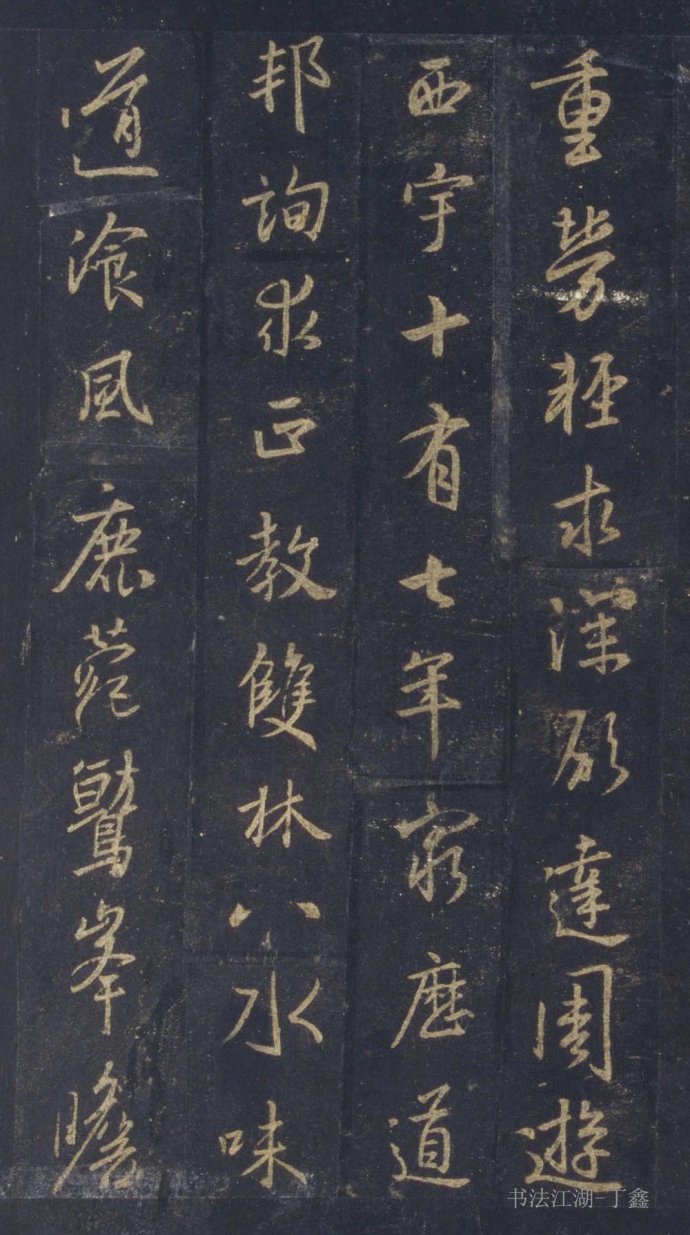 重勞輕求深願達周遊
西宇十有七年窮歷道
邦詢求正教雙林八水味
道飡風鹿菀鷲峯瞻
书法江湖-丁鑫